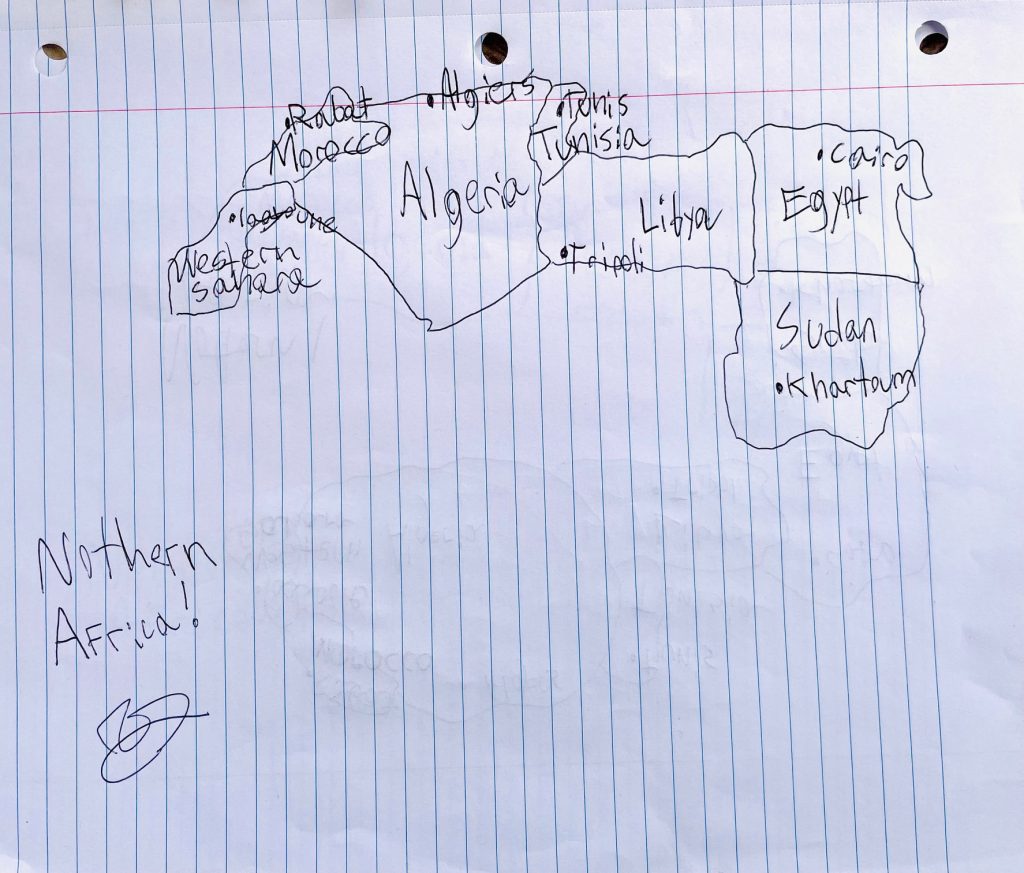 Rabat
Morocco
Algiers
Algeria
Tunis
Tunisia
Libya
Tripoli
Cairo
Egypt
Western
Sahara
Sudan
Khartoum
Nothern
Africa!